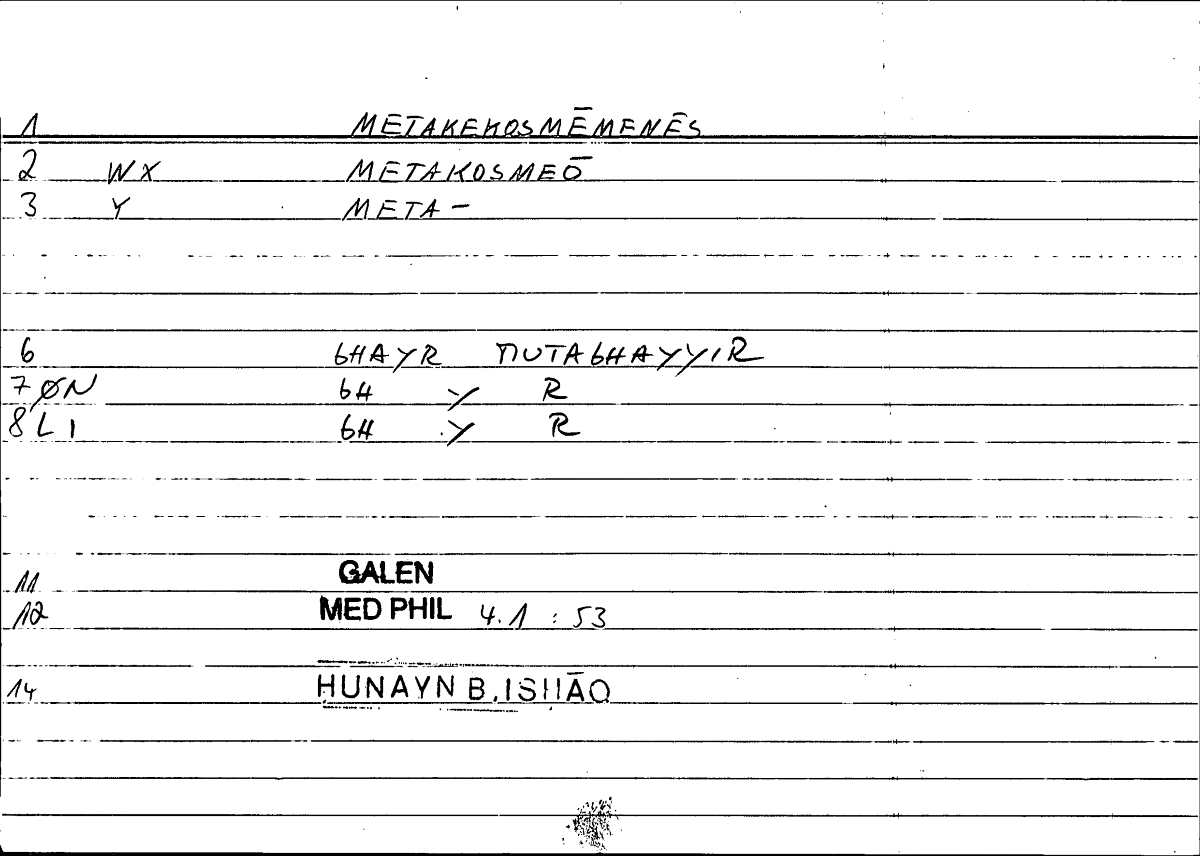 1 METAKEKOSMĒMENĒS
2 WX METAKOSMEŌ
3 Y META-
6 GHAYR MUTAGHAYYIR
7 ØN GH Y R
8 LI GH Y R
11 GALEN
12 MED PHIL 4.1 : 53
14 HUNAYN B. ISḤĀQ